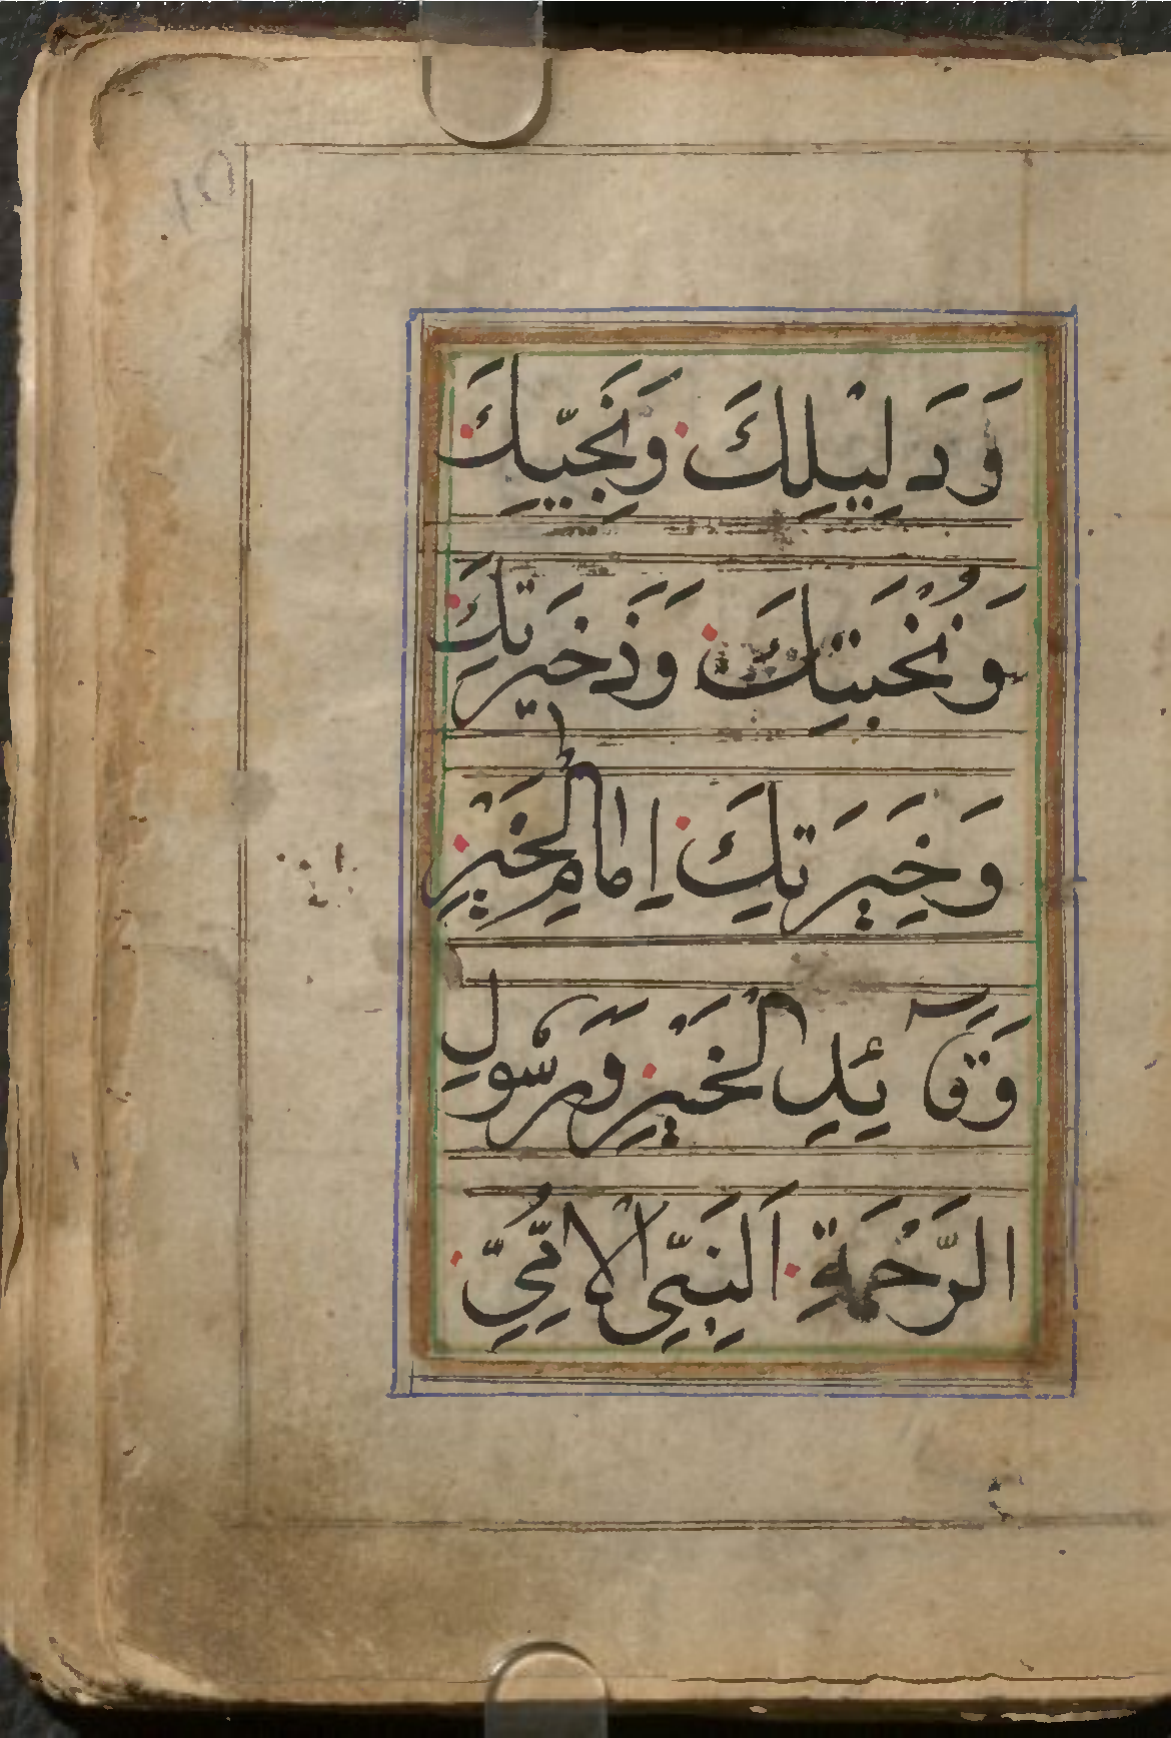 وَدَلِيْلِكَ وَنَجِيّيِكَ
وَنُخْبَتِكَ وَذَخِيرَتِكَ
وَخِيَرَتِكَ اِمَامِ الْخَيْرِ
وَقَآئِدِ الْخَيْرِ وَرَسُولِ
الرَّحْمَةِ اَلنَبِيِّ الْاُمِّيِّ